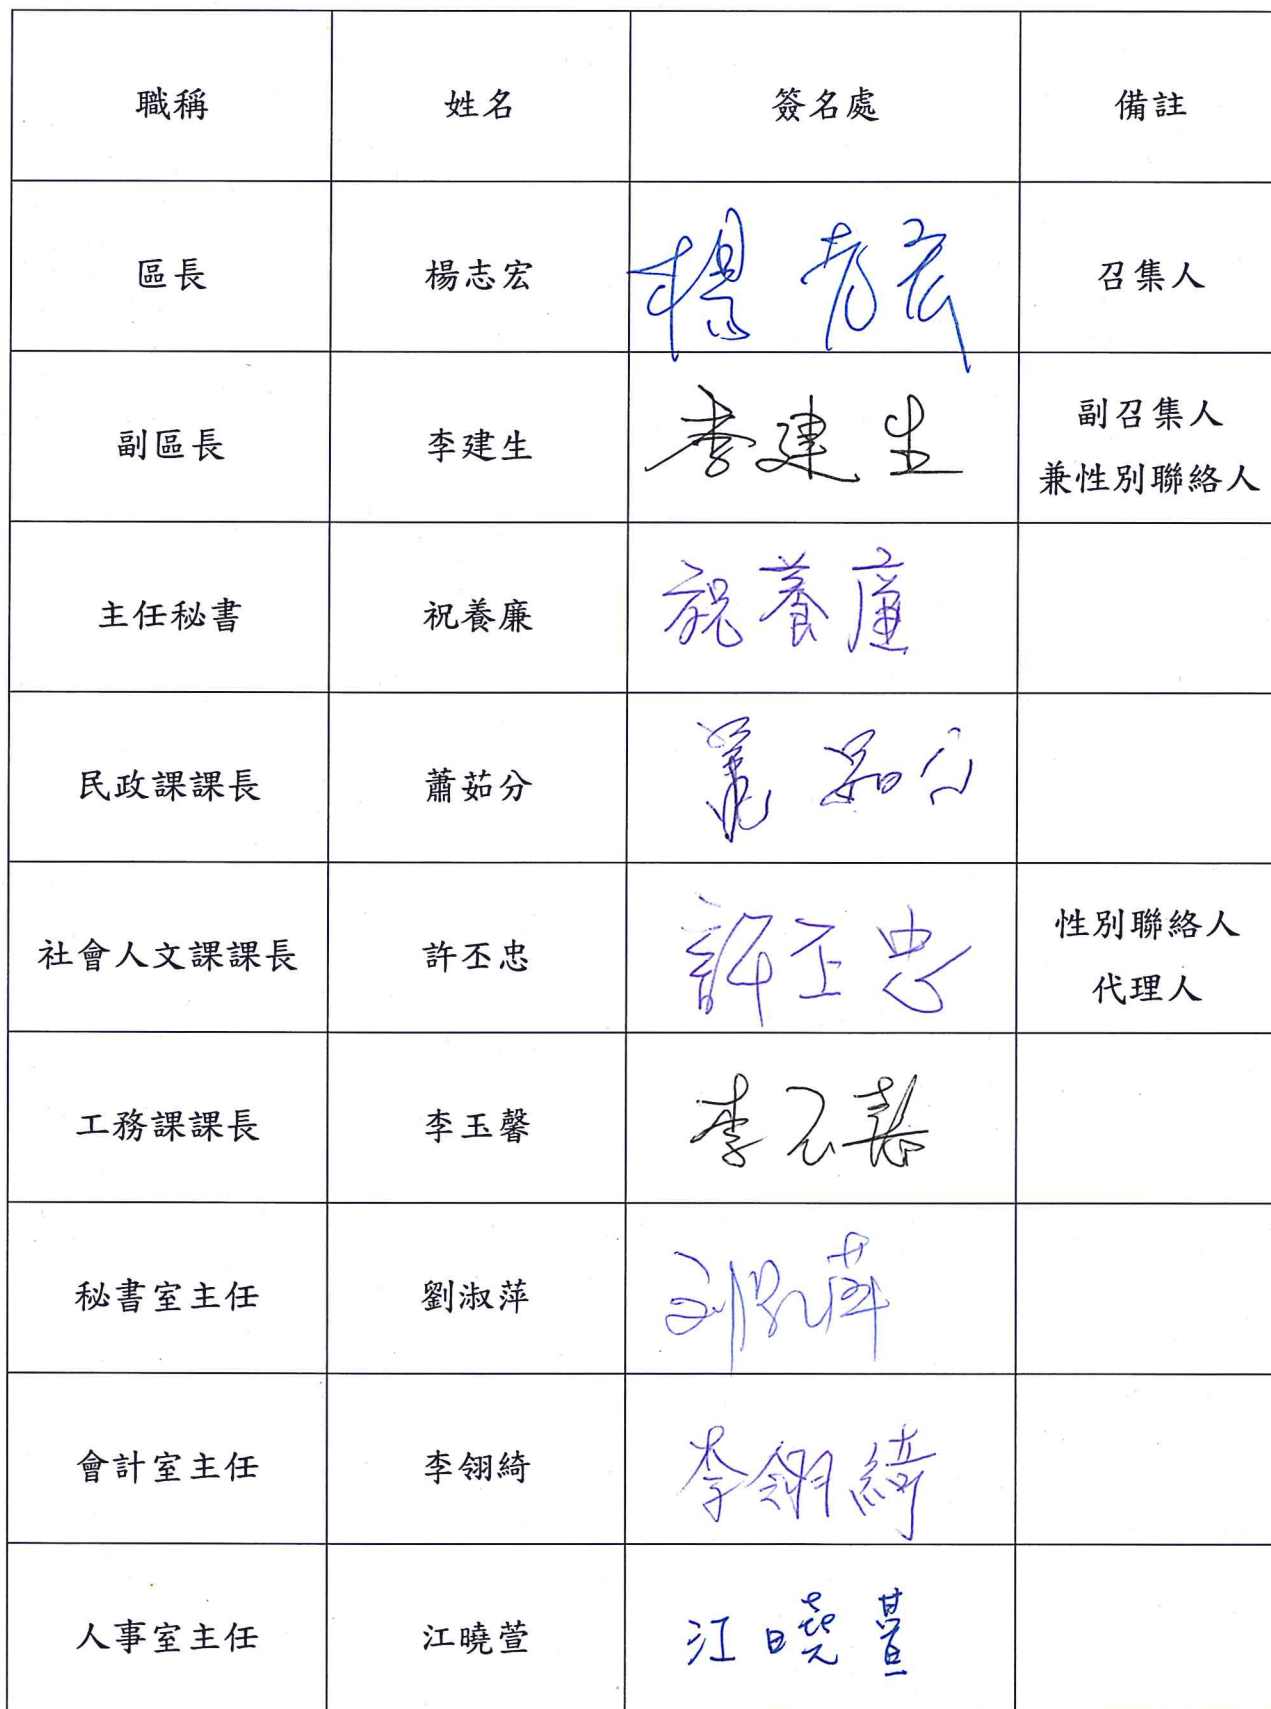 職稱 姓名 簽名處 備註
區長 楊志宏 楊志宏 召集人
副區長 李建生 李建生 副召集人
兼性別聯絡人
主任秘書 祝養廉 祝養廉
民政課課長 蕭茹分 蕭茹分
社會人文課課長 許丕忠 許丕忠 性別聯絡人
代理人
工務課課長 李玉馨 李玉馨
秘書室主任 劉淑萍 刘淑萍
會計室主任 李翎綺 李翎綺
人事室主任 江曉萱 江曉萱